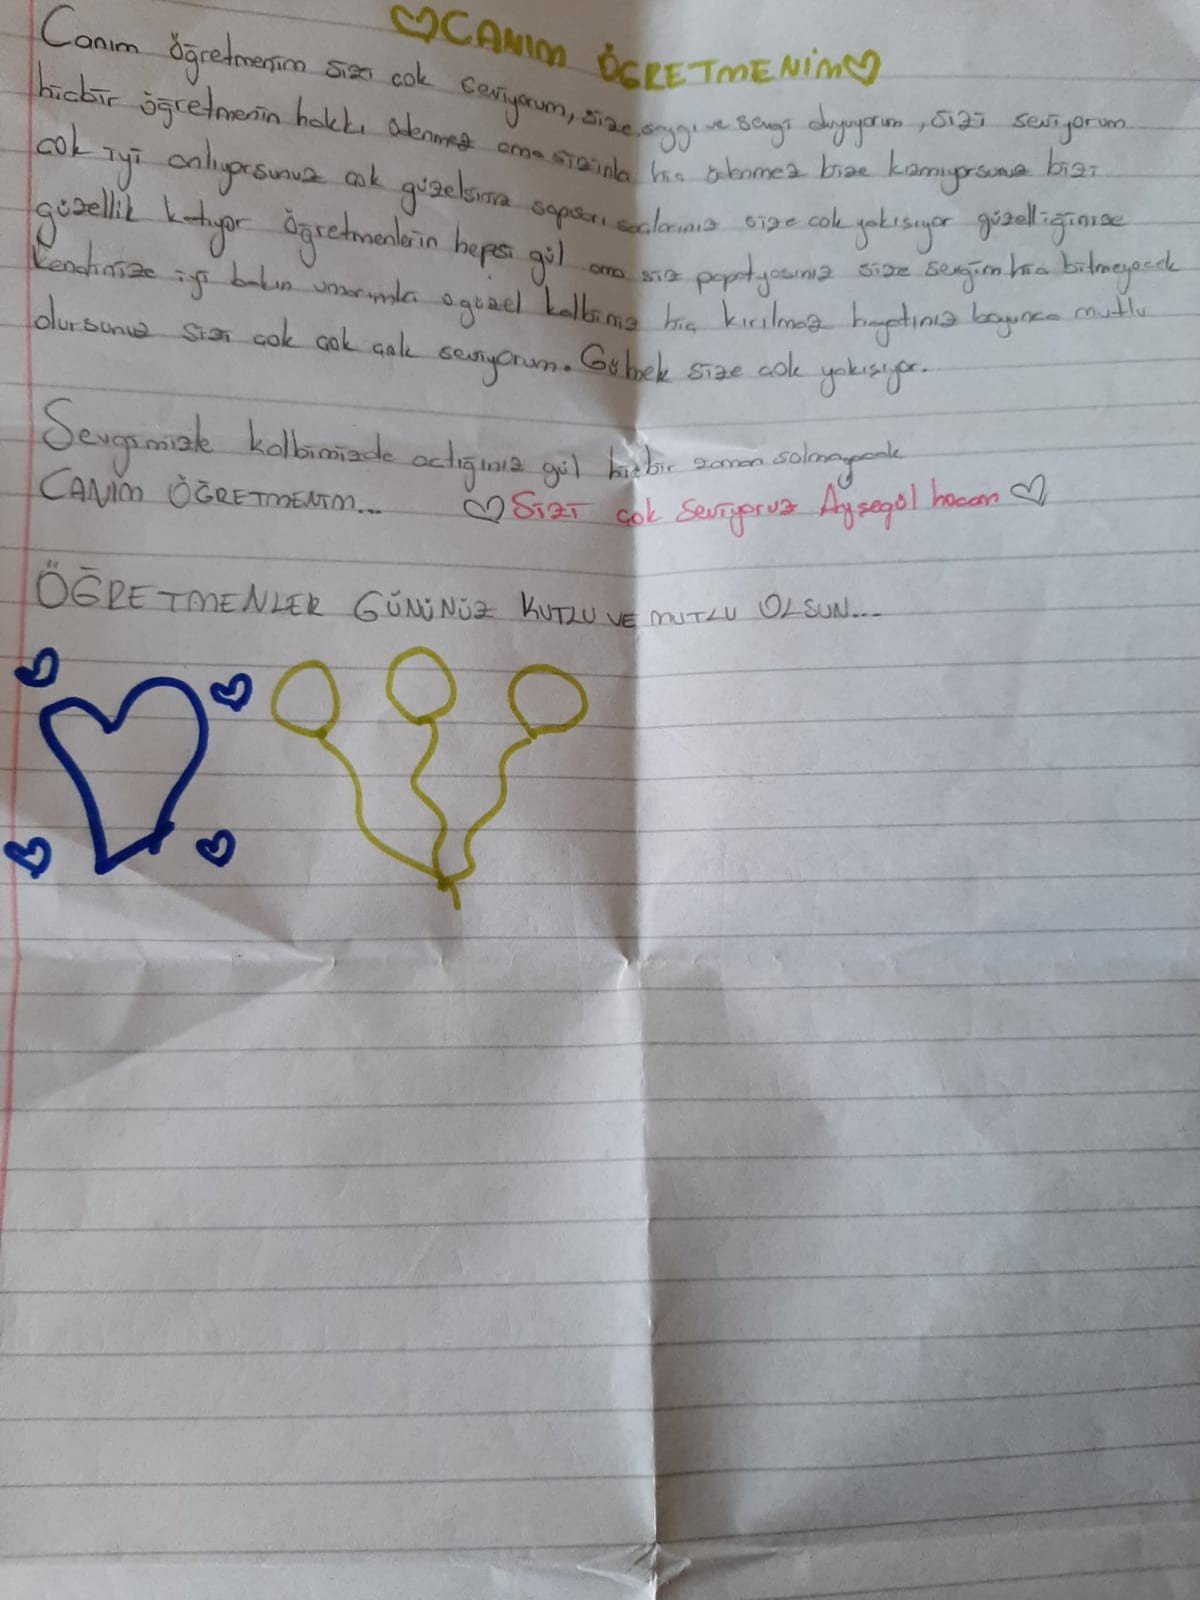 ♡CANIM ÖĞRETMENİM♡
Canım öğretmenim sizi çok seviyorum, size saygı ve sevgi duyuyorum, sizi seviyorum
hiçbir öğretmenin hakkı ödenmez ama sizinki hiç ödenmez bize kızmıyorsunuz bizi
çok iyi anlıyorsunuz çok güzelsiniz sapsarı saçlarınız size çok yakışıyor güzelliğinize
güzellik katıyor öğretmenlerin hepsi gül ama siz papatyasınız size sevgim hiç bitmeyecek
kendinize iyi bakın umarımki o güzel kalbiniz hiç kırılmaz hayatınız boyunca mutlu
olursunuz sizi çok çok çok seviyorum. Gülmek size çok yakışıyor.
Sevginizle kalbimizde açtığınız gül hiçbir zaman solmayacak
CANIM ÖĞRETMENİM... ♡ Sizi çok seviyoruz Ayşegül hocam ♡
ÖĞRETMENLER GÜNÜNÜZ KUTLU VE MUTLU OLSUN...